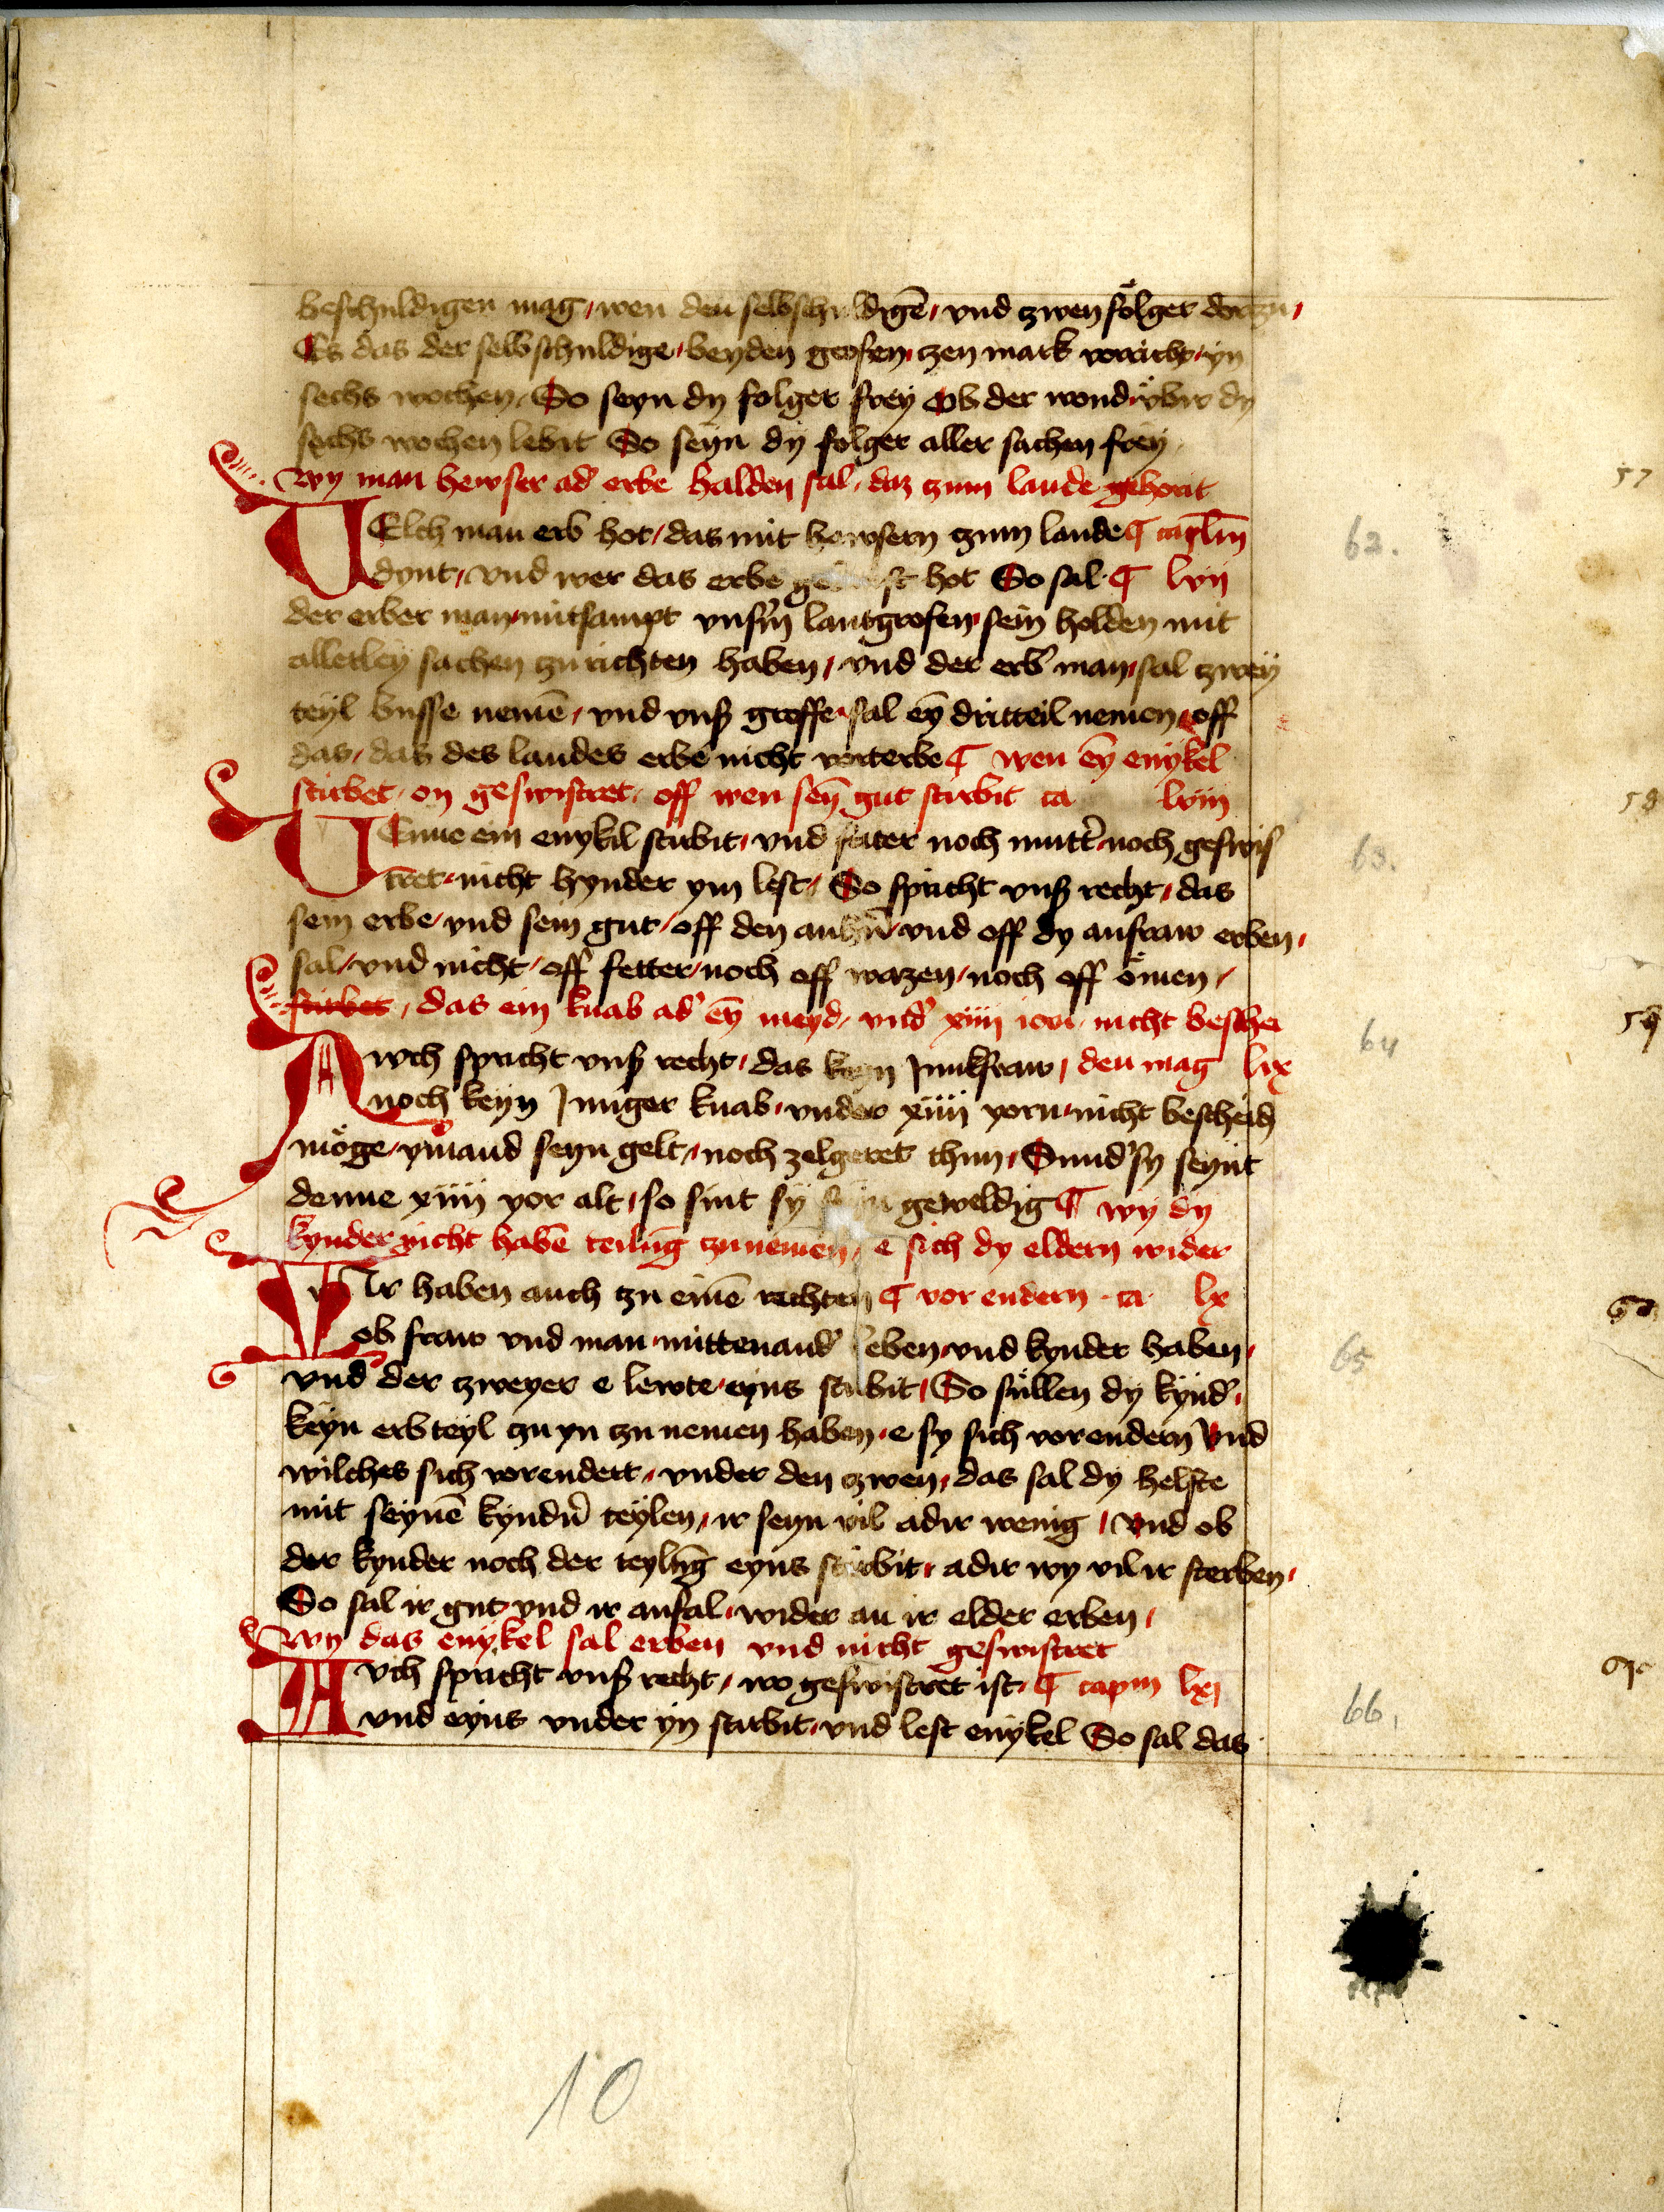 beschuldigen mag, wen den selbschuldigē, vnd zwen fölger dorzu,
Es das der selbschuldige, beyden grofen, zen mark vorricht, yn
sechs wochen, So seyn dy folger frey Ob der wund, vbir dy
sechs wochen lebit So seyn dy folger aller sachen frey
wy man hewser ad' erbe halden sal, daz zum lande gehorit
WElch man erb hot, das mit hewsern zum lande ¶ caplm̄
dynt, vnd wer das erbe hot So sal ¶ lvij
der erber man, mitsampt vnsm̄ lantgrofen, sein holden mit
allerley sachen zu richten haben, vnd der erb' man, sal zwey
teyl busse nemē, vnd vnß groffe, sal eȳ dritteil nemen, off
das, das des landes erbe nicht vorterbe ¶ wen eȳ enykel
stirbet, on geswistret, off wen seȳ gut stirbit ca lviij
WEnne ein enykil stirbit, vnd fater noch mutt' noch geswis
tret, nicht hynder ym lest, So spricht vnß recht, das
sein erbe, vnd sein gut, off den anhn̄, vnd off dy anfraw erben,
sal, vnd nicht, off fetter, noch off wazen, noch off ömen,
stirbet, das ein knab ad' eȳ meyd, vnd' xiiij iori, nicht beschei
Awch spricht vnß recht, das keyn Junkfraw, den mag lix
noch keyn Junger knab, vnder xiiij yorn, nicht bescheidē
möge, ymand seyn gelt, noch zelgeret thun, Sund' sy seynt
denne xiiij yor alt, so sint sy geweldig ¶ wy dy
kynder nicht habē teilūg zu nemen, e sich dy eldern wider
WIr haben auch zu einē rechten ¶ vor endern ca lx
ob fraw vnd man, mittenand' leben, vnd kynder haben,
vnd der zweyer e lewte, eyns stirbit, So süllen dy kynd',
keyn erbteyl zu yn zu nemen haben, e sy sich vorendern Vnd
wilches sich vorendert, vnder den zwen, das sal dy helfte
mit seynē kyndn̄ teylen, ir seyn vil adir wenig, Vnd ob
der kynder noch der teylūg eyns stirbit, adir wy vil ir sterben,
So sal ir gut vnd ir anfal, wider an ir elder erben,
wy das enykel sal erben vnd nicht geswistret
Avch spricht vnß recht, wo geswistret ist, ¶ capm lxj
vnd eyns vnder yn stirbit, vnd lest enykel So sal das
57
62.
58
63.
59
64
60
65
61
66,
10